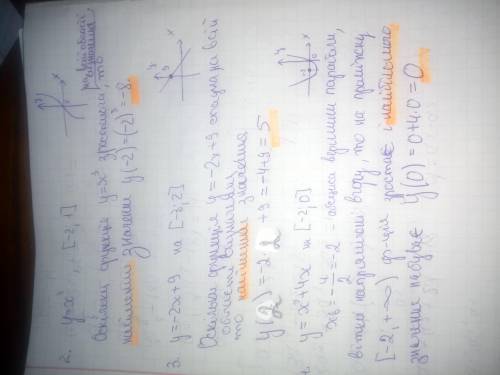 2. y=x³, [-2; 1]
Оскільки функція y=x³ зростаюча на всій області визначення, то
найменше значення y(-2)=(-2)³=-8
3. y=-2x+9 на [-2; 2]
Оскільки функція y=-2x+9 спадна на всій
області визначення,
то найменше значення
y(2)=-2·2+9=-4+9=5
4. y=x²+4x на [-2; 0]
xв=-4/2=-2 - абсциса вершини параболи,
вітки напрямлені вгору, то на проміжку
[-2; +∞) ф-ція зростає і найбільшого
значення набуває y(0)=0+4·0=0